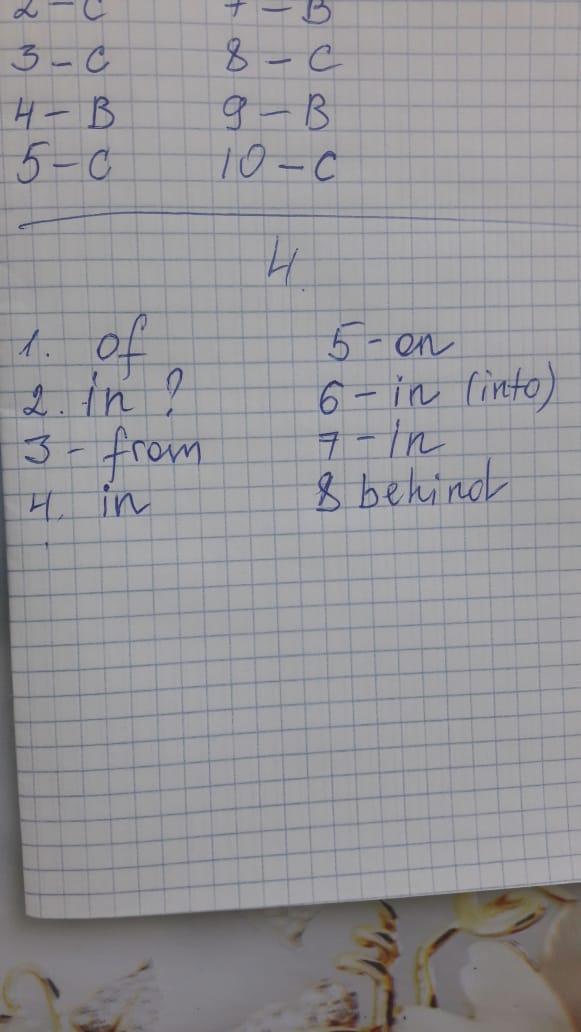 2 - C 7 - B
3 - C 8 - C
4 - B 9 - B
5 - C 10 - C
4.
1. of 5 - on
2. in ? 6 - in (into)
3 - from 7 - in
4. in 8 behind